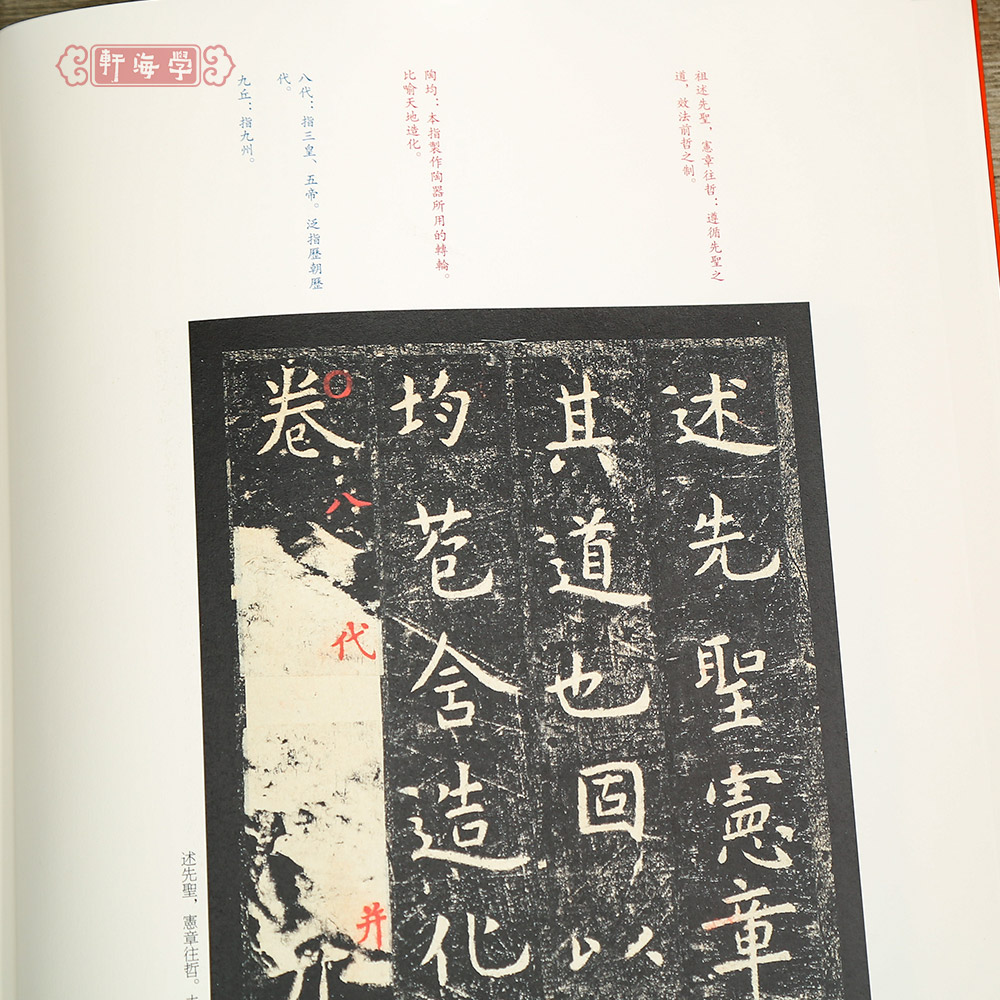 學海軒
祖述先聖，憲章往哲：遵循先聖之
道，效法前哲之制。
陶均：本指製作陶器所用的轉輪。
比喻天地造化。
八代：指三皇、五帝。泛指歷朝歷
代。
九丘：指九州。
述先聖憲章
其道也固以
均苞含造化
○八代并
卷
述先聖，憲章往哲。